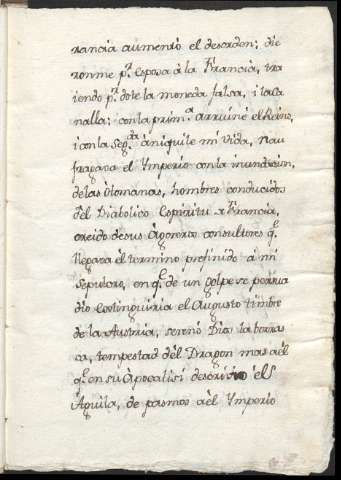 rancia aumentò el desorden; die
ronme p.r Esposa à la Francia, tra
iendo p.r dote la moneda falsa, i la Ca
nalla: con la prim.a arruinè el Reino,
i con la Seg.da aniquile mi vida, Nau
fragava el Ymperio con la inundacion,
de las Otomanas, hombres conducidos
del Diabolico Espiritu a Francia,
creido de sus Agoreros consultores q.e
llegara el termino prefinido à mi
Sepulcro, en q.e de un golpe se persua
dio Extinguiria el Augusto timbre
de la Austria, serenò Dios la borras
ca, tempestad del Dragon mas aèl
q.e en su Apocalisi descriviò èl S
Aguila, de pasmos aèl Ymperio